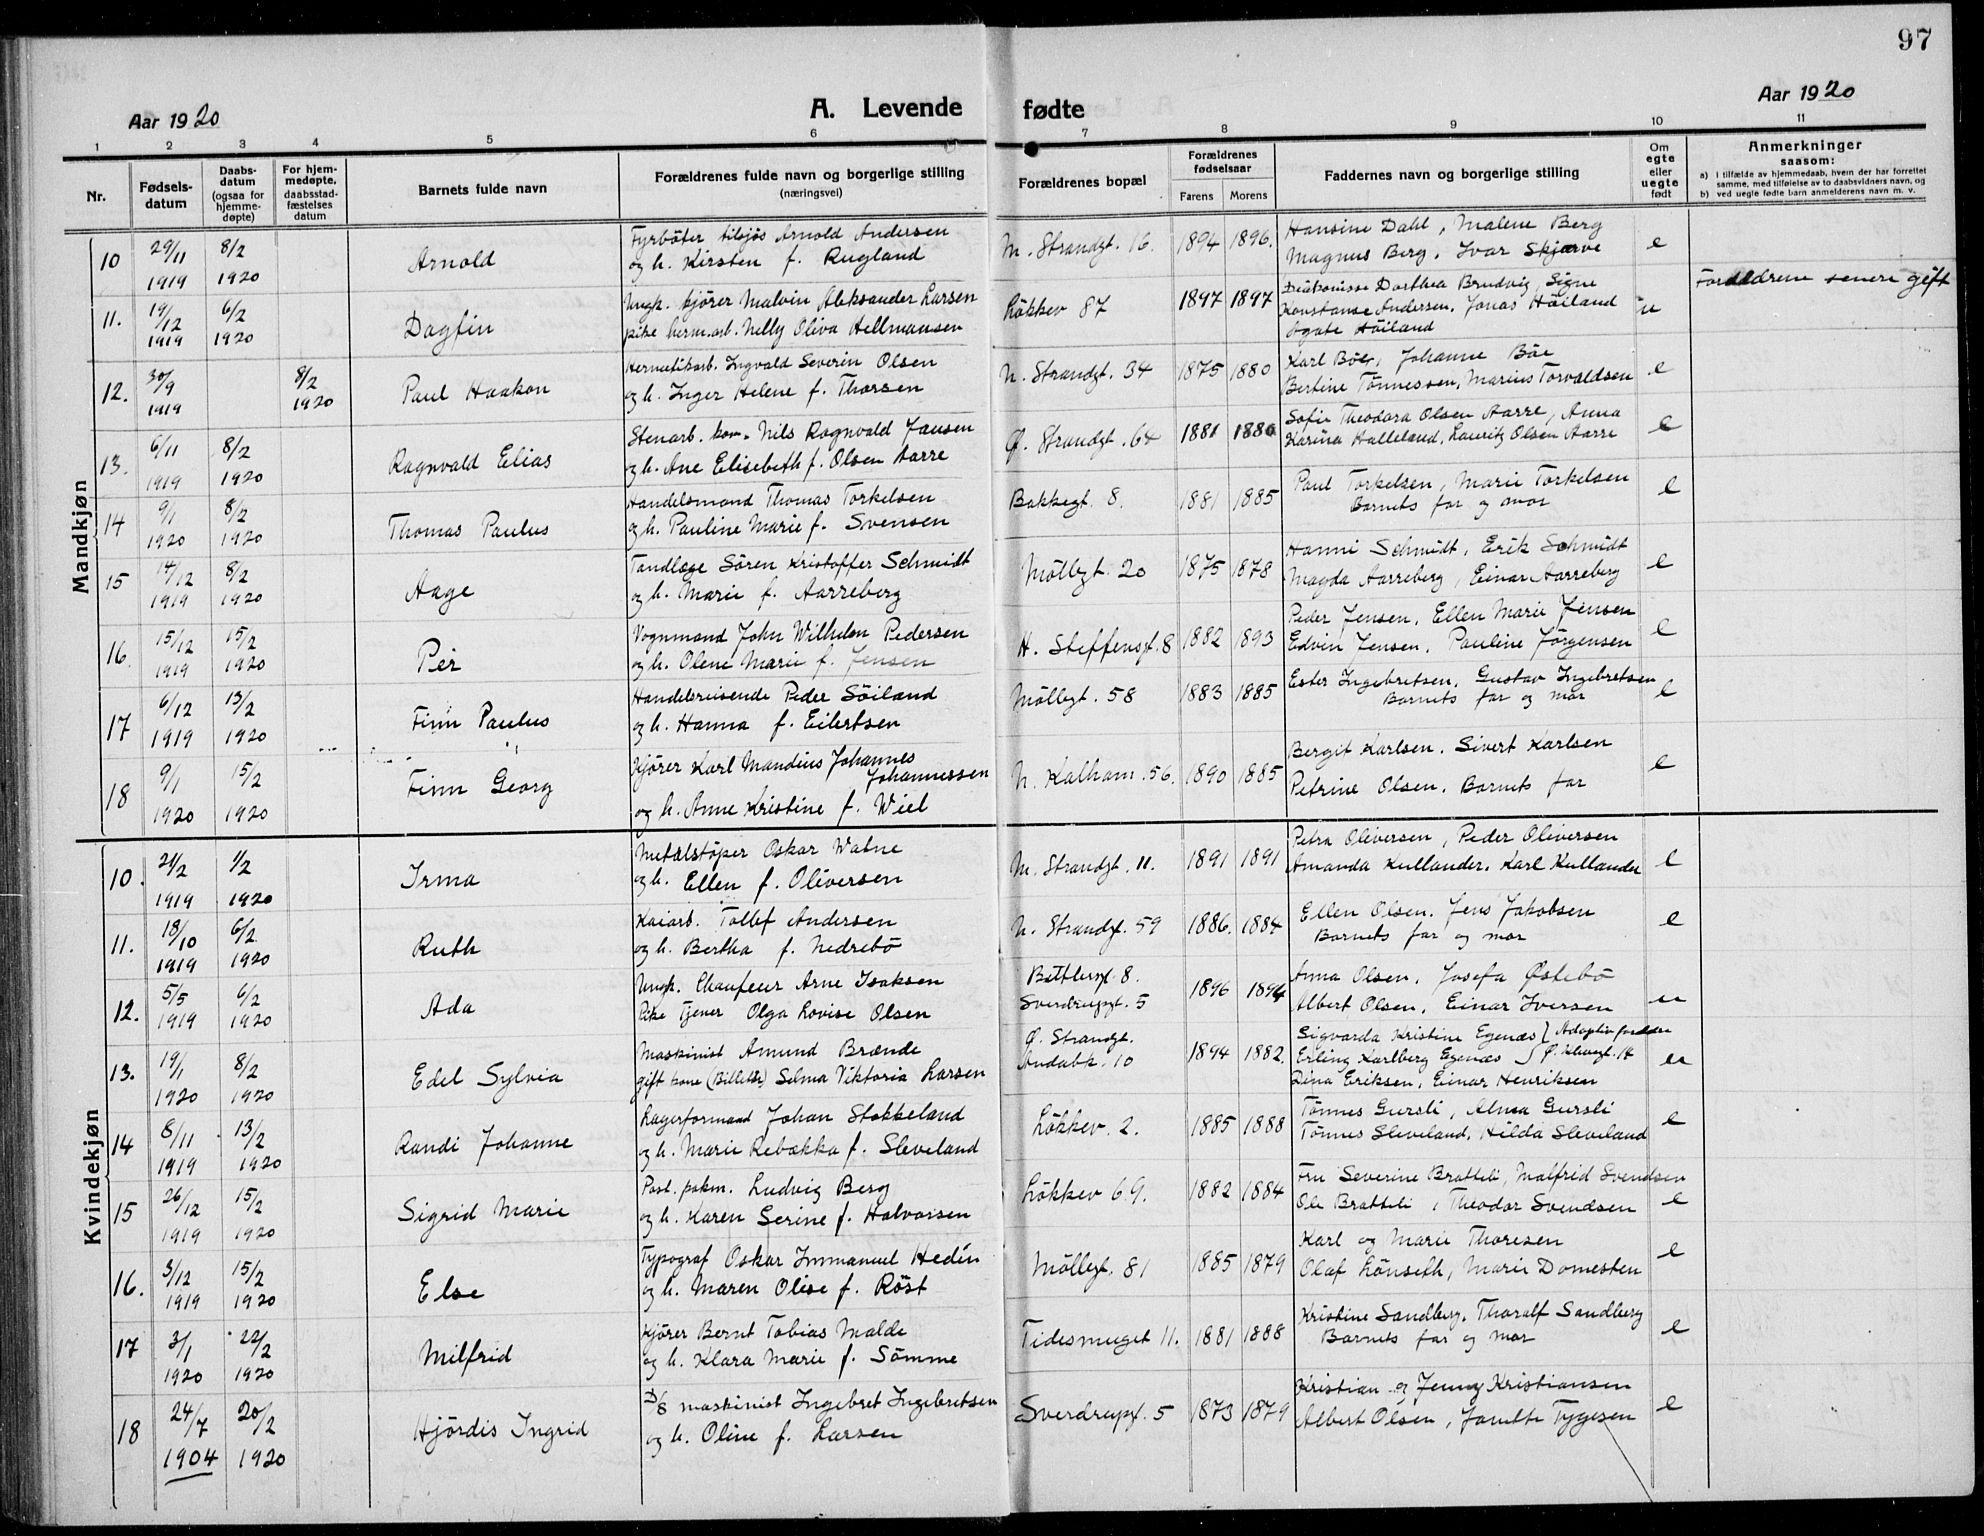 97
Aar 1920
A. Levende fødte
Aar 1920
1 2 3 4 5 6 7 8 9 10 11
Nr.
Fødsels-
datum
Daabs-
datum
(ogsaa for
hjemme-
døpte)
For hjem-
medøpte,
daabsstad-
fæstelses
datum
Barnets fulde navn
Forældrenes fulde navn og borgerlige stilling
(næringsvei)
Forældrenes bopæl
Forældrenes
fødselsaar
Farens Morens
Faddernes navn og borgerlige stilling
Om
egte
eller
uegte
født
Anmerkninger
saasom:
a) i tilfælde av hjemmedaab, hvem der har forrettet
samme, med tilføielse av to daabsvidners navn, og
b) ved uegte fødte barn anmelderens navn m. v.
Mandkjøn
10 29/11 1919 8/2 1920 Arnold
Fyrbøter tilsjøs Arnold Andersen
og h. Kirsten f. Rugland
M. Strandgt. 16. 1894 1896.
Hansine Dahl, Malene Berg
Magnus Berg, Ivar Skjærve
e
11. 19/12 1919 6/2 1920 Dagfin
Ungk. kjører Malvin Aleksander Larsen
pike herm.arb. Nelly Oliva Hellmansen
Løkkev 87 1897 1897
Dorthea Brudvig, Signe
Konstanse Andersen, Jonas Høiland
Agate Høiland
u
Forældrene senere gift
12. 30/9 1919 8/2 1920 Paul Haakon
Hermetikarb. Ingvald Severin Olsen
og h. Inger Helene f. Thorsen
N. Strandgt. 34 1875 1880
Karl Bøe, Johanne Bøe
Bertine Tønnessen, Marius Torvaldsen
e
13. 6/11 1919 8/2 1920 Ragnvald Elias
Stenarb. kom. Nils Ragnvald Jansen
og h. Ane Elisebeth f. Olsen Aarre
Ø. Strandgt. 64 1881 1886
Sofie Theodora Olsen Aarre, Anna
Karina Halleland, Lauritz Olsen Aarre
e
14 9/1 1920 8/2 1920 Thomas Paulus
Handelsmand Thomas Torkelsen
og h. Pauline Marie f. Svensen
Bakkegt. 8. 1881 1885
Paul Torkelsen, Marie Torkelsen
Barnets far og mor
e
15 14/12 1919 8/2 1920 Aage
Tandlæge Sören Kristoffer Schmidt
og h. Marie f. Aarreberg
Møllegt. 20 1875 1878
Hanni Schmidt, Erik Schmidt
Magda Aarreberg, Einar Aarreberg
e
16. 15/12 1919 15/2 1920 Per
Vognmand John Wilhelm Pedersen
og h. Olene Marie f. Jensen
H. Steffensgt. 8 1882 1893
Peder Jensen, Ellen Marie Jensen
Edvin Jensen, Pauline Jørgensen
e
17 6/12 1919 13/2 1920 Finn Paulus
Handelsreisende Peder Söiland
og h. Hanna f. Eilertsen
Møllegt. 58 1883 1885
Ester Ingebretsen, Gustav Ingebretsen
Barnets far og mor
e
18 9/1 1920 15/2 1920 Finn Georg
Kjører Karl Mandius Johannes
Johannessen
og h. Anne Kristine f. Wiel
N. Kalham. 56. 1890 1885
Bergit Karlsen, Sivert Karlsen
Petrine Olsen, Barnets far
e
Kvindekjøn
10. 21/2 1919 1/2 1920 Irma
Metalstøper Oskar Watne
og h. Ellen f. Oliversen
M. Strandgt. 11. 1891 1891
Petra Oliversen, Peder Oliversen
Amanda Kullander, Karl Kullander
e
11. 18/10 1919 6/2 1920 Ruth
Kaiarb. Tollef Andersen
og h. Bertha f. Nedrebø
N. Strandgt. 59 1886. 1884
Ellen Olsen, Jens Jakobsen
Barnets far og mor
e
12. 5/5 1919 6/2 1920 Ada
Ungk. Chaufeur Arne Isaksen
Pike Tjener Olga Lovise Olsen
8.
Sverdrupgt. 5 1896 1894
Anna Olsen, Josefa Østebø
Albert Olsen, Einar Iversen
u
13. 19/1 1920 8/2 1920 Edel Sylvia
Maskinist Amund Brænde
gift kone (Billettr.) Selma Viktoria Larsen
Ø. Strandgt.
Andabk. 10 1894 1882.
Sigvarda Kristine Egenæs } Adoptivforældre
Erling Karlberg Egenæs
Dina Eriksen, Einar Henriksen
u
14 8/11 1919 13/2 1920 Randi Johanne
Lagerformand Johan Stokkeland
og h. Marie Rebekka f. Sleveland
Løkkev. 2. 1885 1888
Tønnes Gursli, Alma Gursli
Tønnes Sleveland, Hilda Sleveland
e
15 26/12 1919 15/2 1920 Sigrid Marie
Post. pakm. Ludvig Berg
og h. Karen Serine f. Halvorsen
Løkkev 69. 1882 1884
Fru Severine Bratteli, Malfrid Svendsen
Ole Bratteli, Theodor Svendsen
e
16. 3/12 1919 15/2 1920 Else
Typograf Oskar Immanuel Hedin
og h. Maren Olise f. Røst
Møllegt. 81 1885 1879
Karl og Marie Thoresen
Olaf Lønseth, Marie Domesten
e
17 3/1 1920 22/2 1920 Milfrid
Kjører Bernt Tobias Malde
og h. Klara Marie f. Sømme
Tidesmuget 11. 1881 1888
Kristine Sandberg, Thoralf Sandberg
Barnets far og mor
e
18 24/7 1904 20/2 1920 Hjördis Ingrid
D/S maskinist Ingebret Ingebretsen
og h. Oline f. Larsen
Sverdrupgt. 5 1873 1879
Kristian og Jenny Kristiansen
Albert Olsen, Tygesen
e